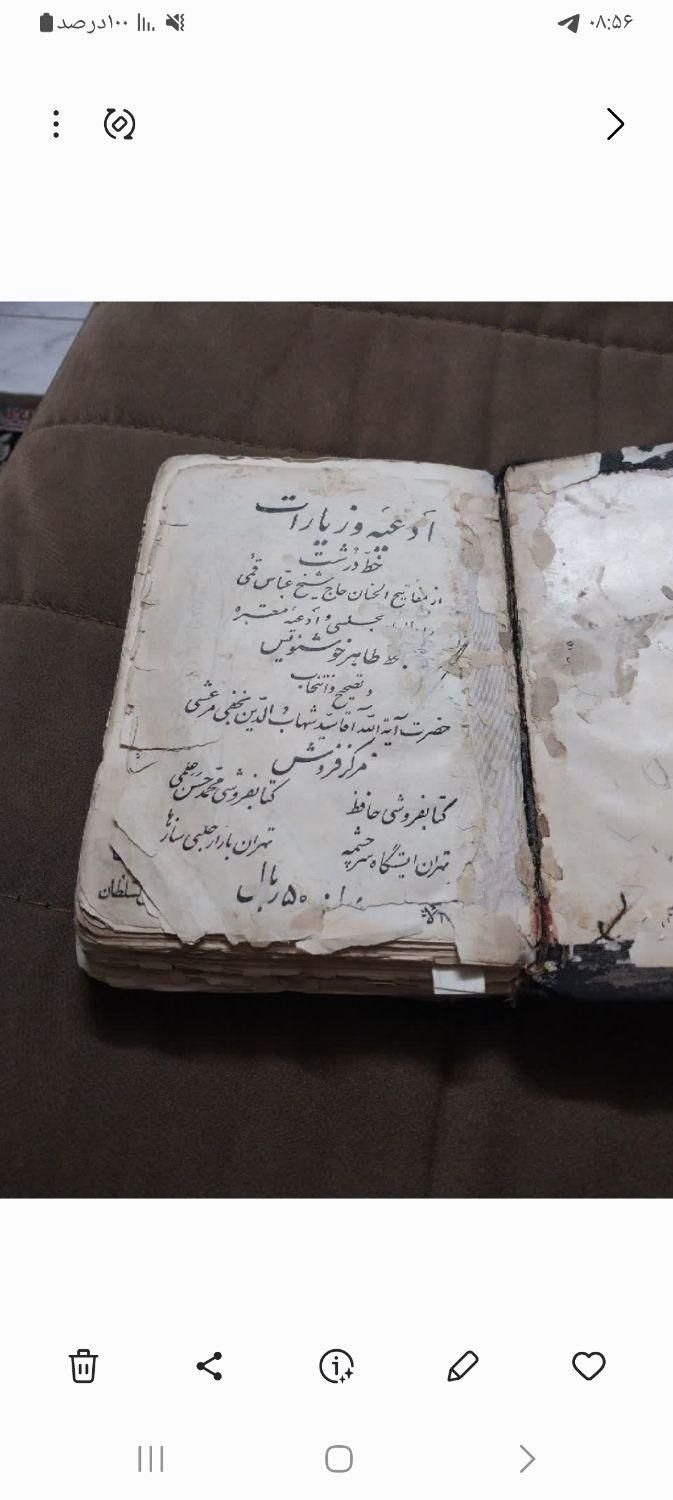 ۰۸:۵۶
۱۰۰درصد
ادعیه و زیارات
خط درشت
از مفاتیح الجنان حاج شیخ عباس قمی
مجلسی و ادعیه معتبره
بخط طاهر خوشنویس
و تصحیح و انتخاب
حضرت آیة الله آقا سید شهاب الدین نجفی مرعشی
مرکز فروش
کتابفروشی محمد حسن علمی
کتابفروشی حافظ
تهران بازار حلبی سازها
تهران ایستگاه سرچشمه
۵۰ ریال
سلطان